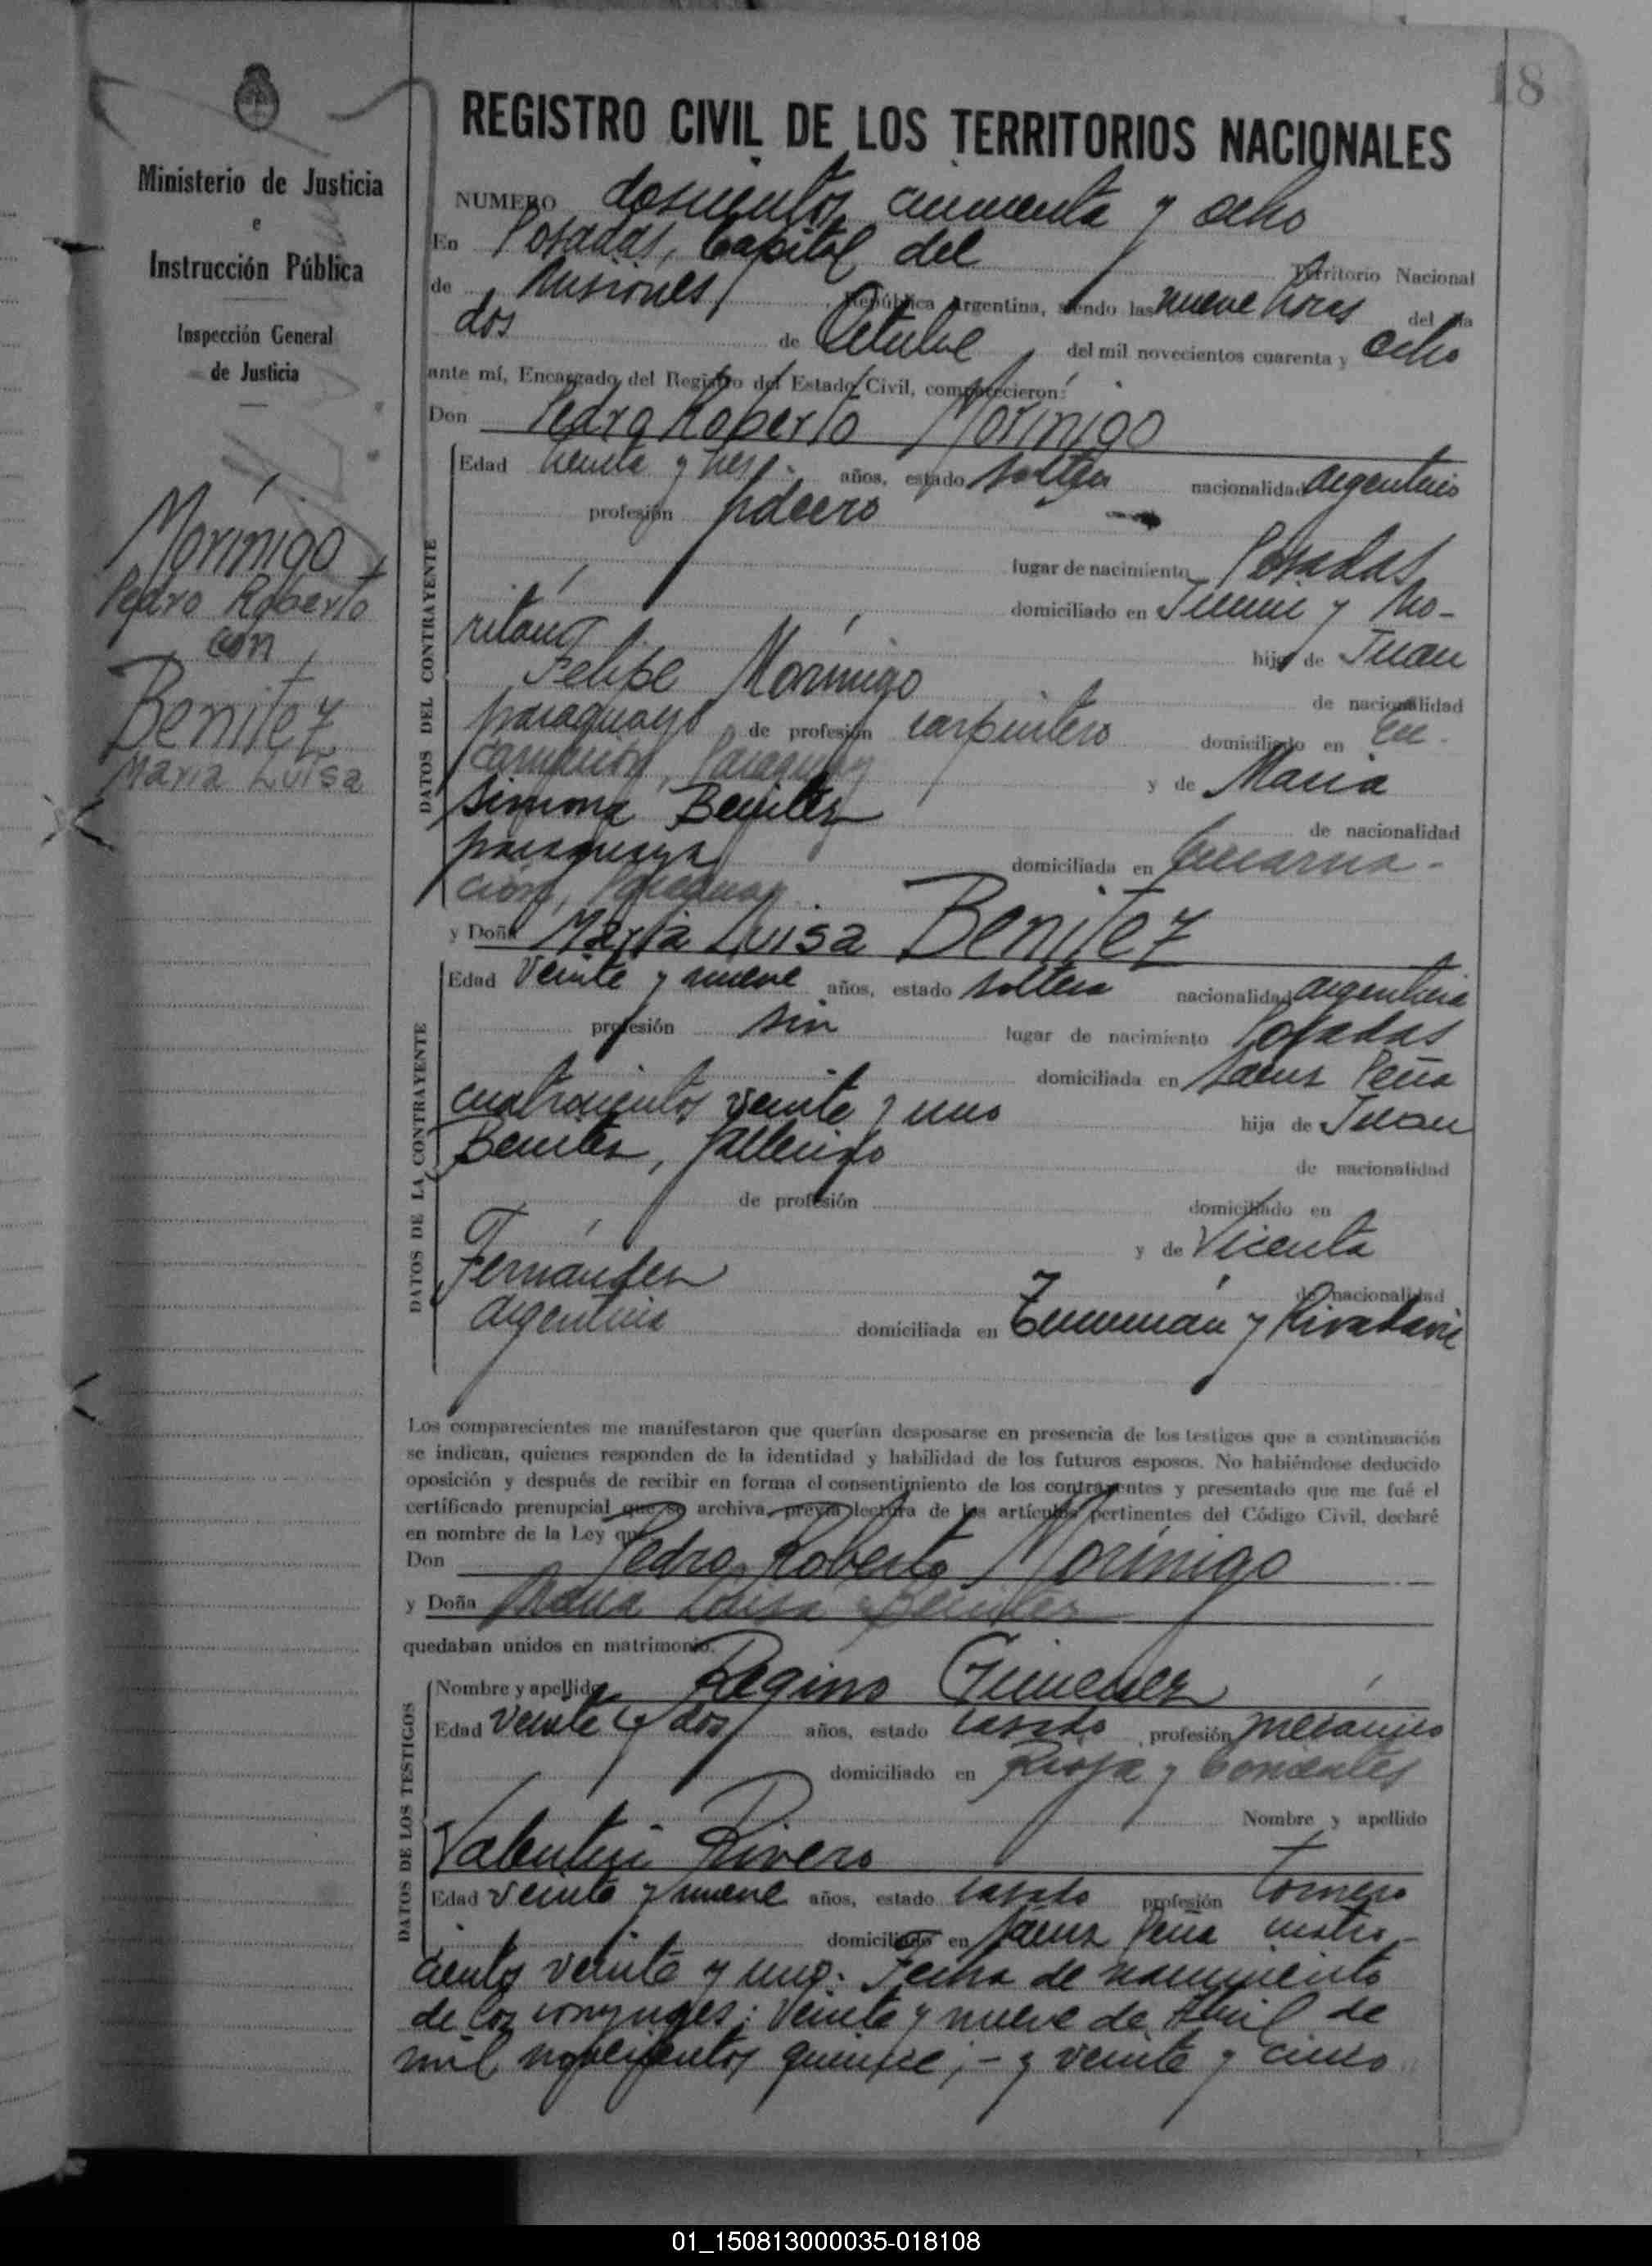 18
Ministerio de Justicia
e
Instrucción Pública
Inspección General
de Justicia
Morínigo
Pedro Roberto
con
Benitez
María Luisa
REGISTRO CIVIL DE LOS TERRITORIOS NACIONALES
NUMERO doscientos cincuenta y ocho
En Posadas, Capital del Territorio Nacional
de Misiones, República Argentina, siendo las nueve horas del día
dos de Octubre del mil novecientos cuarenta y ocho
ante mí, Encargado del Registro del Estado Civil, comparecieron:
Don Pedro Roberto Morínigo
DATOS DEL CONTRAYENTE
Edad treinta y tres años, estado soltero nacionalidad argentino
profesión
lugar de nacimiento Posadas
domiciliado en y
hijo de Juan
Felipe Morínigo de nacionalidad
paraguayo de profesión carpintero domiciliado en En-
carnación, Paraguay y de María
Simona Benitez de nacionalidad
paraguaya domiciliada en Encarna-
ción, Paraguay
y Doña María Luisa Benitez
DATOS DE LA CONTRAYENTE
Edad veinte y nueve años, estado soltera nacionalidad argentina
profesión sin lugar de nacimiento Posadas
domiciliada en Saenz Peña
cuatrocientos veinte y uno hija de Juan
Benitez, fallecido de nacionalidad
de profesión domiciliado en
y de Vicenta
Fernández de nacionalidad
argentina domiciliada en Tucumán y Rivadavia
Los comparecientes me manifestaron que querían desposarse en presencia de los testigos que a continuación
se indican, quienes responden de la identidad y habilidad de los futuros esposos. No habiéndose deducido
oposición y después de recibir en forma el consentimiento de los contrayentes y presentado que me fué el
certificado prenupcial que se archiva, previa lectura de los artículos pertinentes del Código Civil, declaré
en nombre de la Ley que
Don Pedro Roberto Morínigo
y Doña María Luisa Benitez
quedaban unidos en matrimonio.
DATOS DE LOS TESTIGOS
Nombre y apellido Regino Gimenez
Edad veinte y dos años, estado casado, profesión mecánico
domiciliado en Rioja y Corrientes
Nombre y apellido
Valentin Rivero
Edad veinte y nueve años, estado casado profesión tornero
domiciliado en Saenz Peña cuatro-
cientos veinte y uno. Fecha de nacimiento
de los conyuges: veinte y nueve de Abril de
mil novecientos quince; - y veinte y cinco
01_150813000035-018108